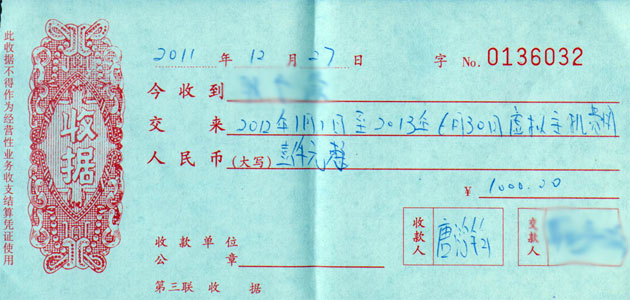 此收据不得作为经营性业务收支结算凭证使用
收据
2011 年 12 月 27 日 字 No. 0136032
今收到
交来 2012年1月1日至2013年6月30日虚拟主机费用
人民币(大写) 壹仟元整
¥ 1000.00
收款单位
公章
收款人 唐
交款人
第三联收据